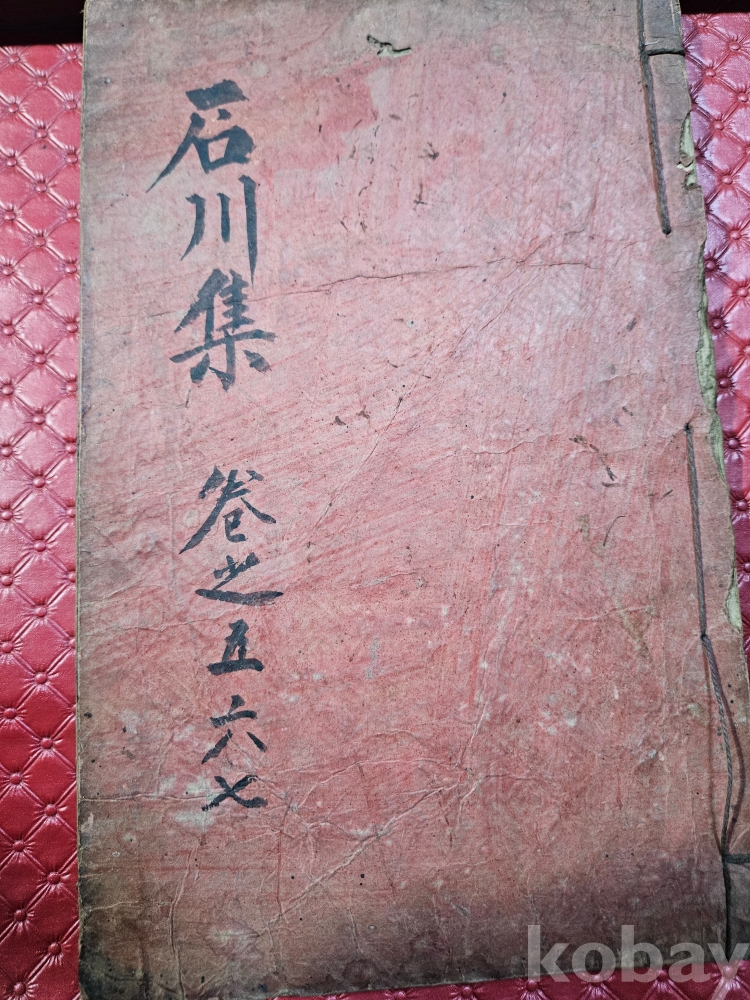 石川集 卷之五六七
kobay